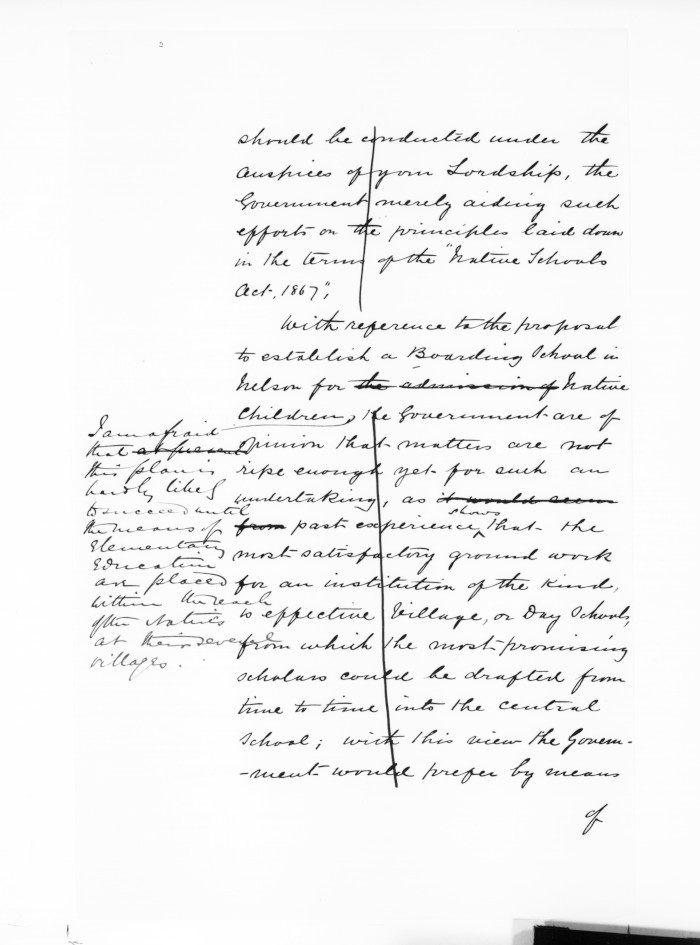 should be conducted under the
auspices of your Lordship, the
Government merely aiding such
efforts on the principles laid down
in the terms of the "Native Schools
Act, 1867",
With reference to the proposal
to establish a Boarding School in
Nelson for the admission of Native
Children, the Government are of
opinion that matters are not
ripe enough yet for such an
undertaking, as it would seem
from past experience shows that the
most satisfactory ground work
for an institution of the kind,
is effective Village, or Day Schools,
from which the most promising
scholars could be drafted from
time to time into the central
School; with this view the Govern-
-ment would prefer by means
of
I am afraid
that at present
this plan is
hardly likely
to succeed until
the means of
Elementary
Education
are placed
within the reach
of the Natives
at their several
villages.